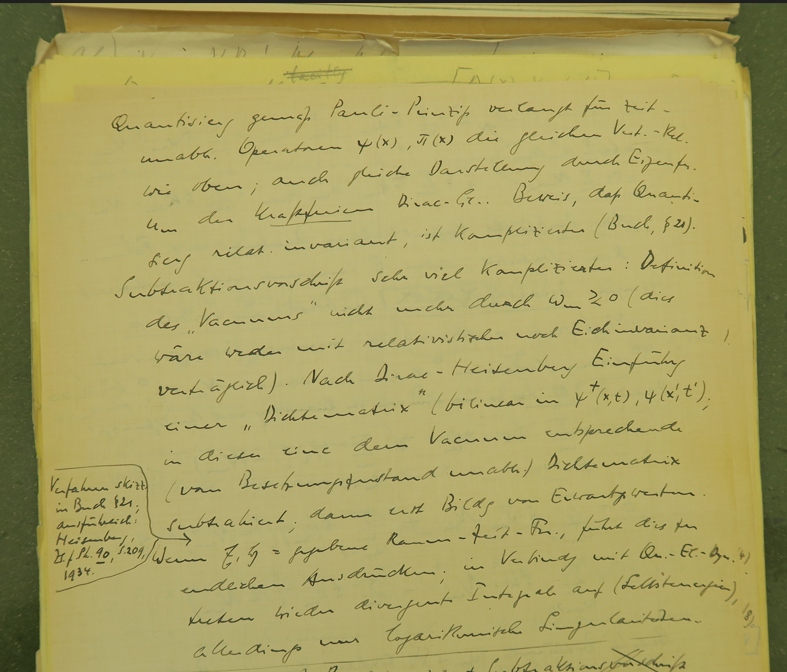 Quantisierg gemäß Pauli-Prinzip verlangt für zeit-
unabh. Operatoren ψ(x), π(x) die gleichen Vert.-Rel.
wie oben; auch gleiche Darstellung durch Eigenfu.
um der kräftefreien Dirac-Gl.. Beweis, daß Quanti-
sierg relat. invariant, ist komplizierter (Buch, §21).
Subtraktionsvorschrift sehr viel komplizierter: Definition
des „Vacuums" nicht mehr durch Wm ≥ 0 (dies
wäre weder mit relativistischer noch Eichinvarianz
verträglich). Nach Dirac-Heisenberg Einführg
einer „Dichtematrix" (bilinear in ψ†(x,t), ψ(x',t');
in dieser eine dem Vacuum entsprechende
(vom Besetzungszustand unabh.) Dichtematrix
subtrahiert; dann erst Bildg von Erwartgswerten.
Wenn = gegebene Raum-Zeit-Fn., führt dies zu
endlichen Ausdrücken; in Verbindg mit Qu.-El.-Dyn.
treten wieder divergente Integrale auf (Selbstenergien),
allerdings nur logarithmische Singularitäten.
Verfahren skizz.
in Buch §21;
ausführlich:
Heisenberg,
Zs. f. Ph. 90, S. 209,
1934.
Subtraktionsvorschrift